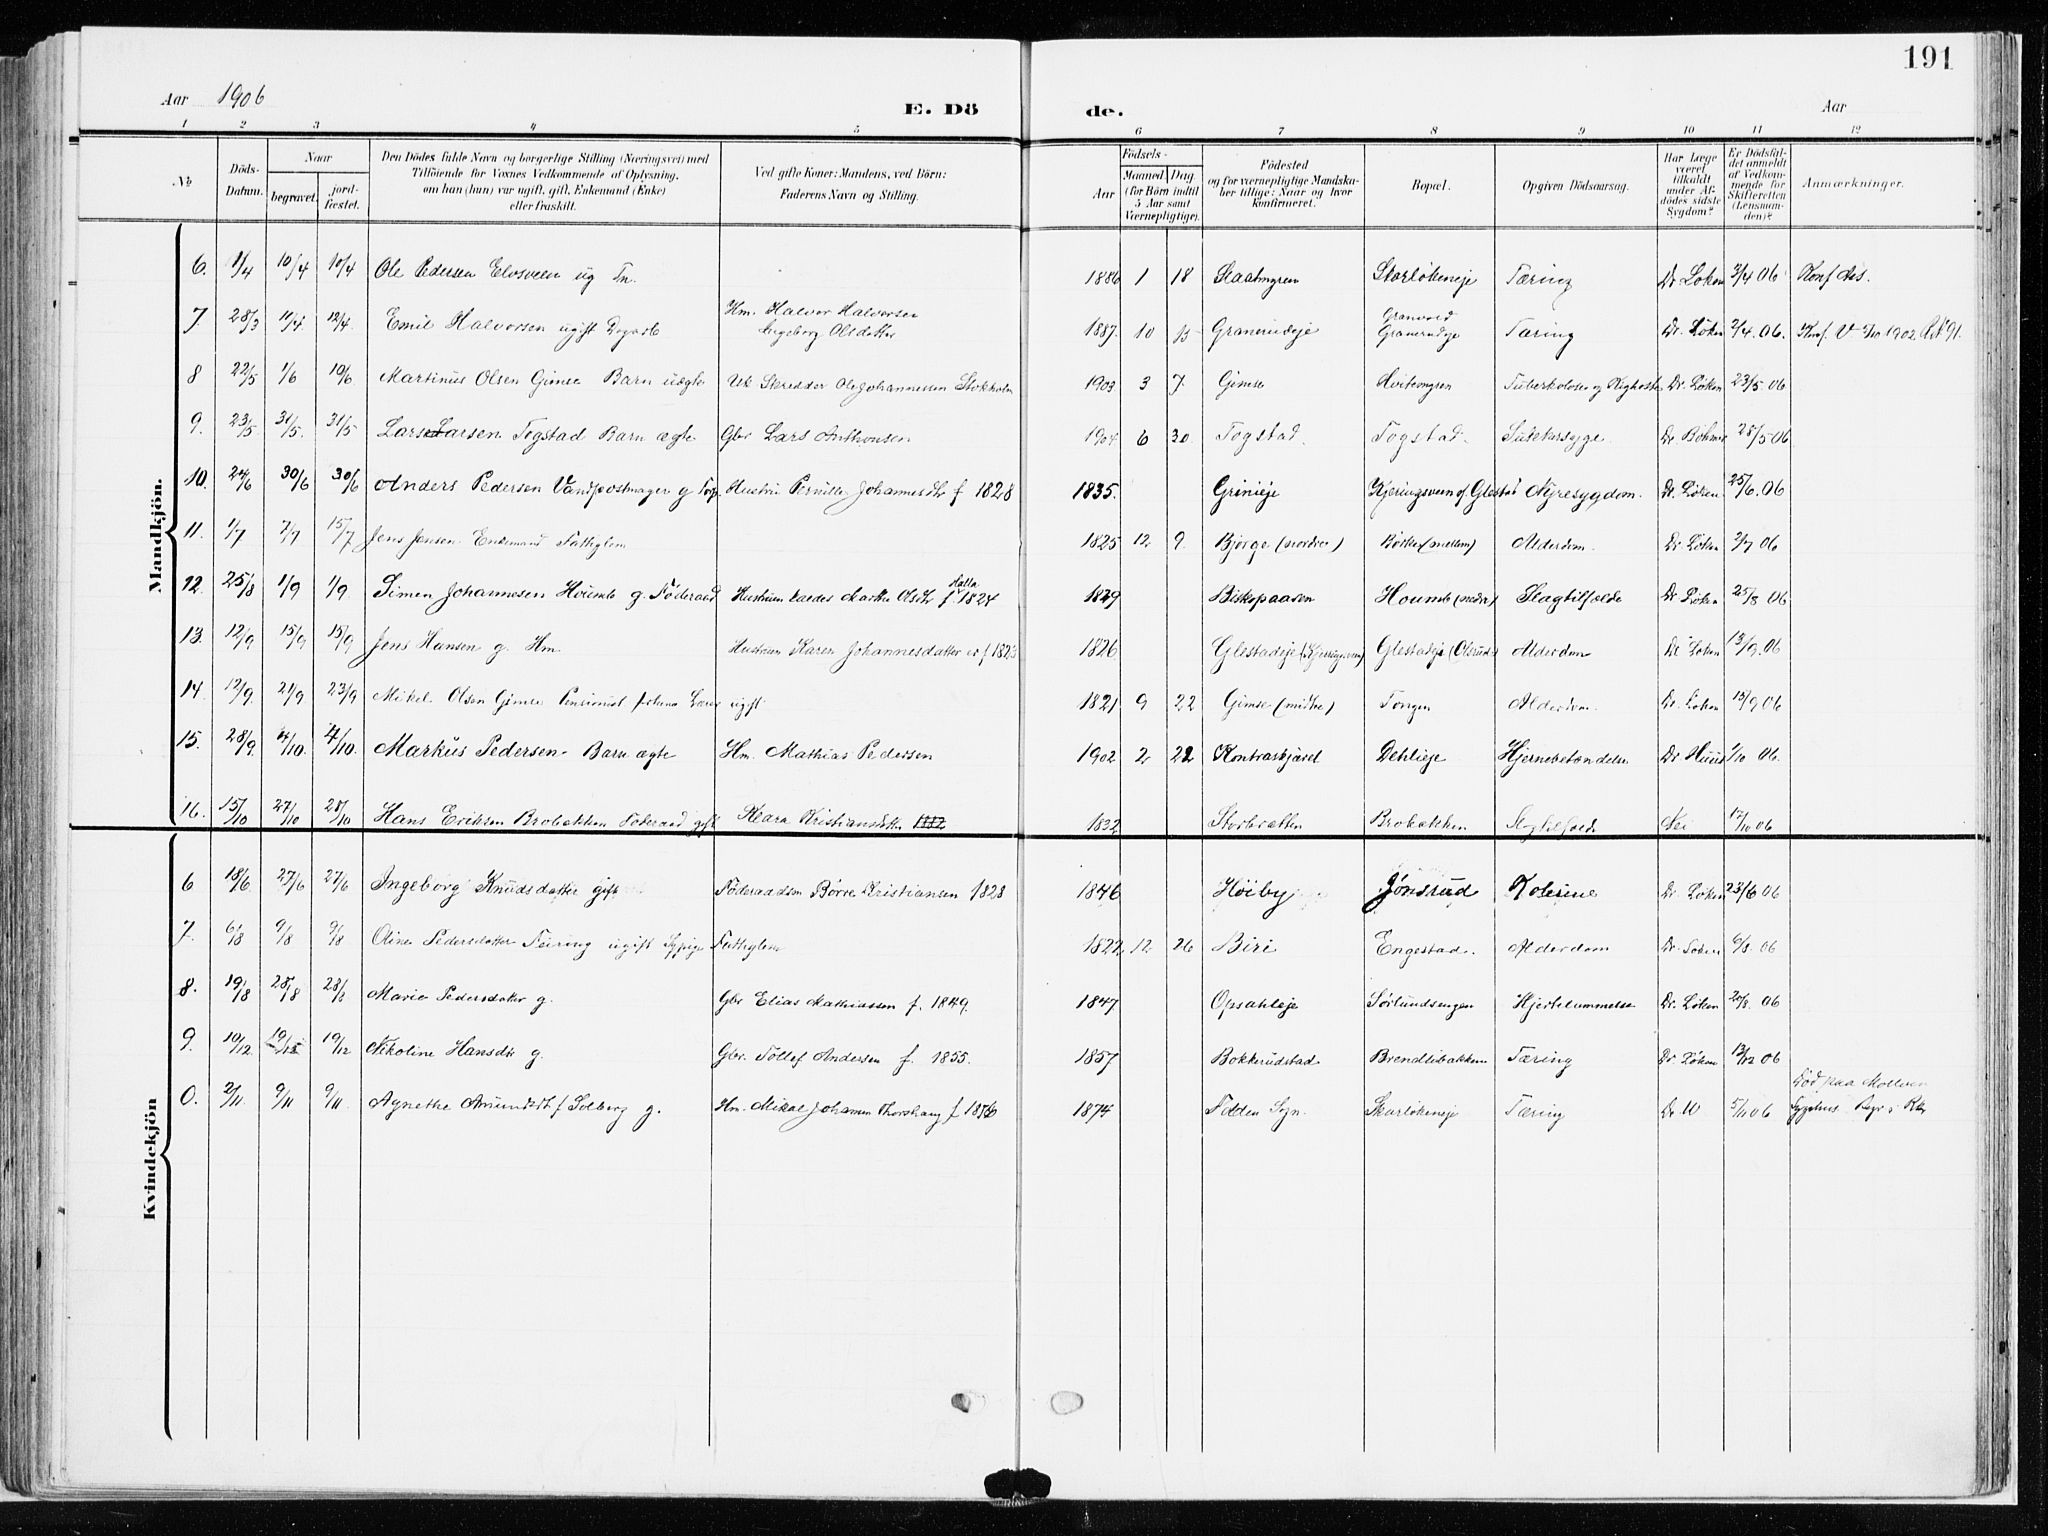 191
Aar 1906
E. Dö de.
Aar
1 2 3 4 5 6 7 8 9 10 11 12
No.
Döds-Datum.
Naar
begravet.
jord-fæstet.
Den Dödes fulde Navn og borgerlige Stilling (Næringsvei) med
Tilföiende for Voxnes Vedkommende af Oplysning,
om han (hun) var ugift, gift, Enkemand (Enke)
eller fraskilt.
Ved gifte Koner: Mandens, ved Börn:
Faderens Navn og Stilling.
Födsels-
Aar
Maaned Dag.
(for Börn indtil
5 Aar samt
Værnepligtige).
Födested
og for værnepligtige Mandska-
ber tillige: Naar og hvor
konfirmeret.
Bopæl.
Opgiven Dödsaarsag.
Har Læge
været
tilkaldt
under Af-
dödes sidste
Sygdom?
Er Dödsfal-
det anmeldt
af Vedkom-
mende for
Skifteretten
(Lensman-
den)?
Anmærkninger.
Mandkjön.
6. 1/4 10/4 10/4 Ole Pedersen Elvsveen ug Tn. 1886 1 18 Skarlökeneje Tæring Dr. Löken 3/4 06 Konf Aas.
7. 28/3 11/4 12/4 Emil Halvorsen ugift Dagarb Hm. Halvor Halvorsen Ingeborg Olsdatter 1887. 10 Granerudeje Granvold Granerudeje Tæring Dr. Löken 2/4.06. Konf. 1902
8 22/5 1/6 10/6 Martinus Olsen Gimse Barn uægte Uk Skrædder Ole Johannessen Stokholm 1903 3 7. Gimse Hvitengen Tuberkolose og Kighoste Dr. Löken 23/5 06
9. 23/5 31/5. 31/5 Lars Larsen Togstad Barn ægte Gbr Lars Anthonsen 1904 6 30. Togstad. Togstad. Dr. Böhmer 28/5 06
10. 24/6 30/6 30/6 Anders Pedersen Vandpostmager g Hustru Pernille Johannesdtr f 1828 1835. Grinieje Kjeringsveen af Glestad Nyresygdom. Dr. Löken. 25/6.06
11. 1/7 7/7 15/7 Jens Jensen Enkemand Fattiglem 1825 12 9. Bjorge (nordre) Börke (mellem) Alderdom. Dr. Löken 2/7 06
12. 25/8 1/9 1/9 Simen Johannesen Houmb g. Föderaad Hustruen kaldes Marthe Olsdtr f. 1824 1829 Biskopaasen Houmb (nedre) Slagtilfælde Dr Löken 25/8 06
13. 12/9 15/9 15/9 Jens Hansen g. Hm. Hustruen Karen Johannesdatter er f 1823 1826 Glestadeje (Kjeringsveen) Glestadeje (Olsrud) Alderdom Dr Löken 13/9.06
14. 12/9. 21/9 23/9 Mikel Olsen Gimse Pensionist forhens Lærer ugift 1821 9 22 Gimse (midtre) Tongen Alderdom. Dr. Löken 13/9 06
15. 28/9. 4/10. 4/10. Markus Pedersen. Barn ægte Hm. Mathias Pedersen 1902 2 22 Kontraskjæret Dehlieje Hjernebetændelse Dr. Huus 1/10 06.
16. 15/10 27/10 28/10 Hans Eriksen Brobakken Föderaad gift Klara Kristiansdatter 1832 Storbratten Brobakken Slagtilfælde Nei 17/10 06
Kvindekjön
6 18/6 27/6 27/6 Ingeborg Knudsdatter gift Föderaadsm Börre Kristiansen 1828 1846 Höiby Jönsrud Kolerine Dr. Löken 23/6 06
7. 6/8 9/8 9/8 Oline Pedersdatter Feiring ugift Sypige Fattiglem 1822 12 26 Biri Engestad. Alderdom Dr. Löken 6/8 06
8. 19/8 28/8 28/8 Marie Pedersdatter g. Gbr Elias Mathiassen f. 1849. 1847. Opsahleje Sörlundsengen Hjertelammelse Dr. Löken 20/8. 06
9. 10/12 19/12 19/12 Nikoline Hansdtr g. Gbr. Tollef Andersen f. 1855. 1857 Bokkerudstad Brendlibakken Tæring Dr Löken 13/12 06
0. 2/11. 9/11 9/11. Agnethe Amundsdt. f Solberg g. Hm. Mikal Johannesen Thorshaug f 1876 1874 Fodden Sogn. Skarlökeneje Tæring Dr W 5/11 06 Död paa Mollven Sygehus